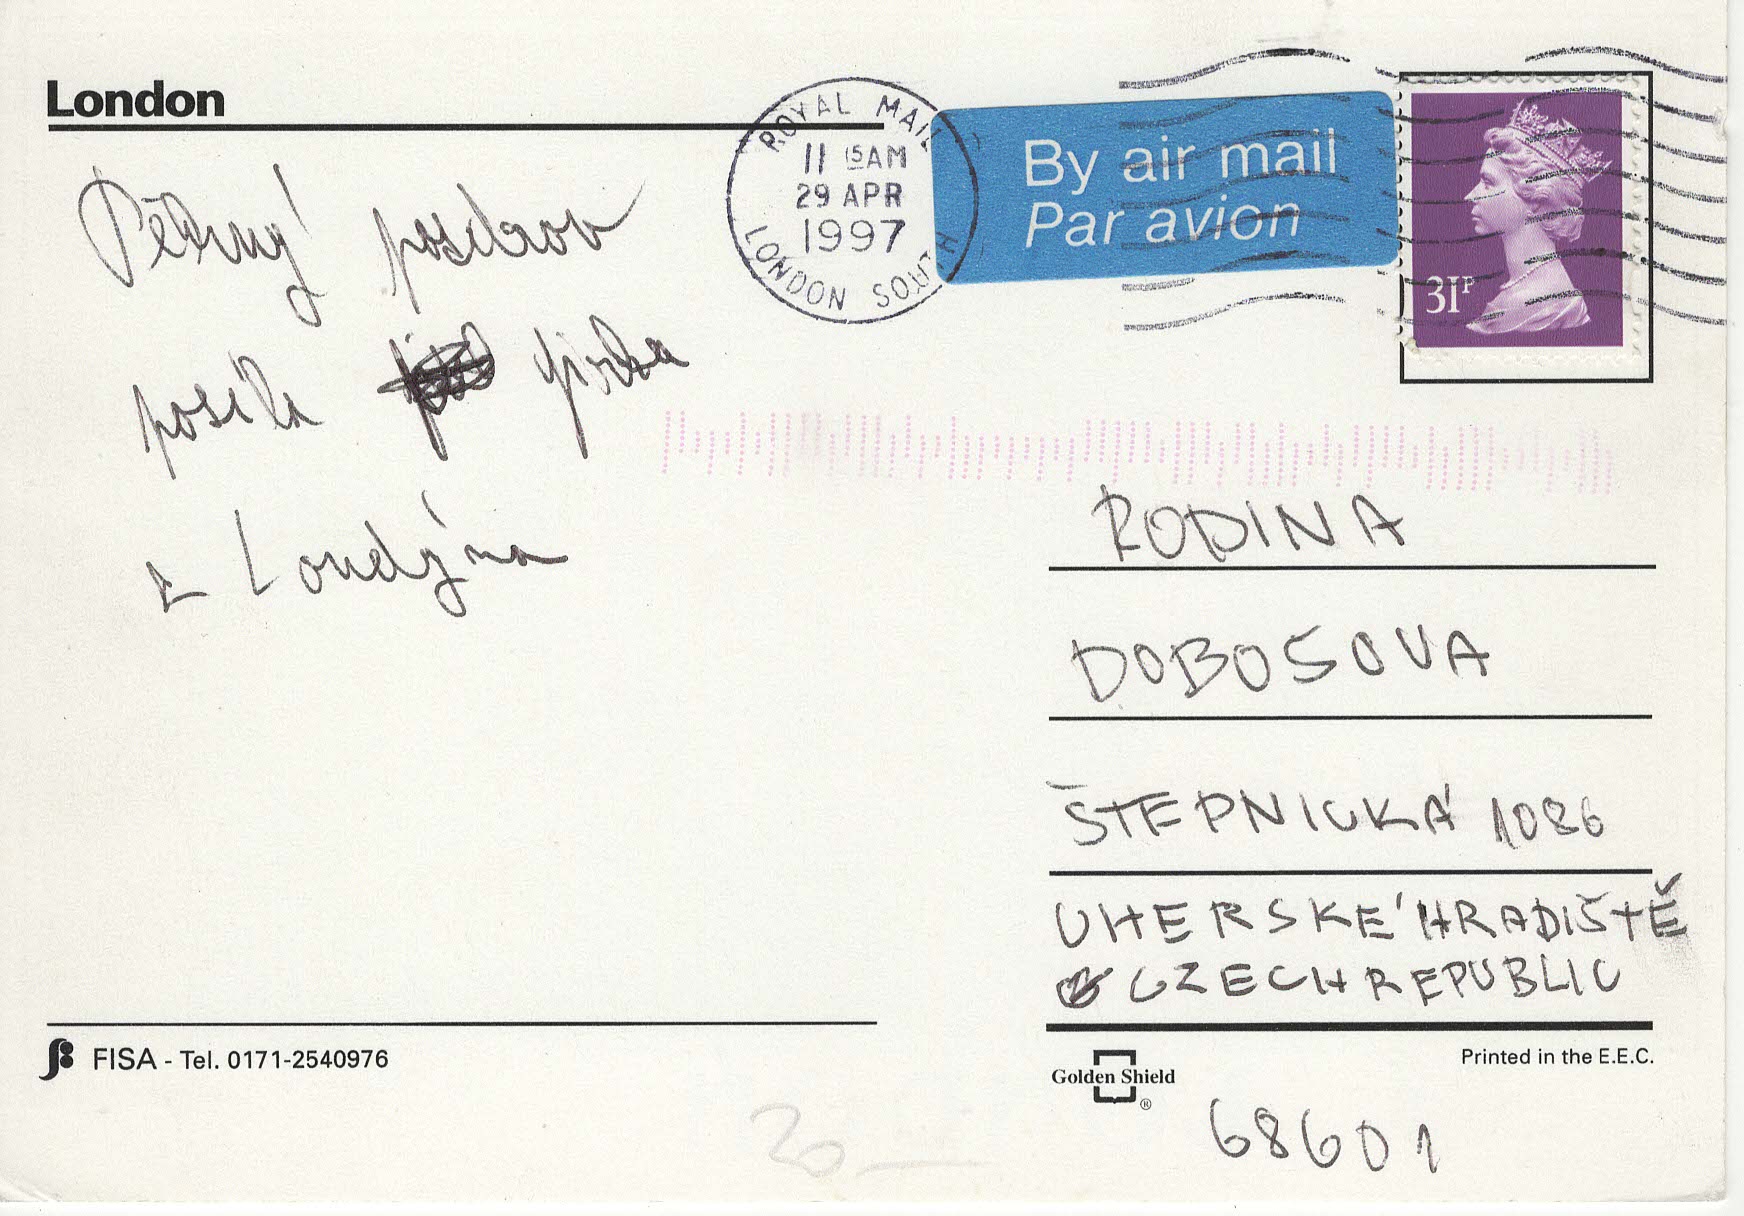 London
ROYAL MAIL
11 15AM
29 APR
1997
LONDON SOUTH
By air mail
Par avion
31P
Pěkný pozdrav
posílá Jirka
z Londýna
RODINA
DOBOSOVA
ŠTEPNICKÁ 1086
UHERSKÉ HRADIŠTĚ
CZECH REPUBLIC
FISA - Tel. 0171-2540976
Golden Shield
®
Printed in the E.E.C.
68601
20 —